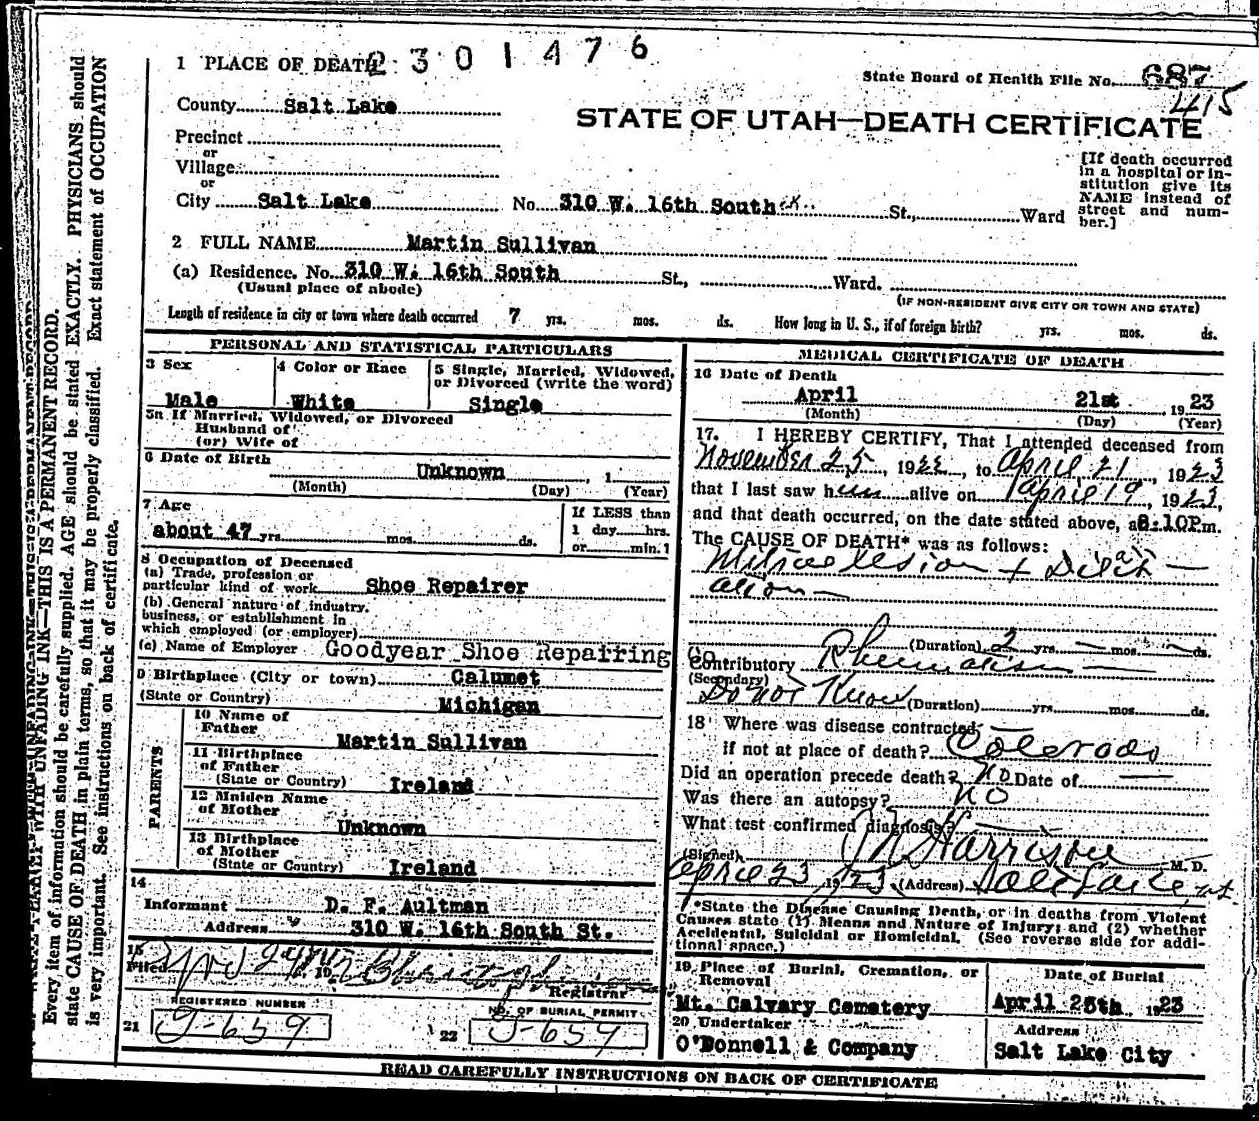 2301476
1 PLACE OF DEATH
State Board of Health File No. 687
415
County Salt Lake
STATE OF UTAH—DEATH CERTIFICATE
Precinct
or
Village
or
City Salt Lake No. 310 W. 16th South St., Ward
[If death occurred
in a hospital or in-
stitution give its
NAME instead of
street and num-
ber.]
2 FULL NAME Martin Sullivan
(a) Residence. No. 310 W. 16th South St., Ward.
(Usual place of abode)
(IF NON-RESIDENT GIVE CITY OR TOWN AND STATE)
Length of residence in city or town where death occurred 7 yrs. mos. ds. How long in U. S., if of foreign birth? yrs. mos. ds.
PERSONAL AND STATISTICAL PARTICULARS
3 Sex
Male
4 Color or Race
White
5 Single, Married, Widowed,
or Divorced (write the word)
Single
5a If Married, Widowed, or Divorced
Husband of
(or) Wife of
6 Date of Birth
Unknown 1
(Month) (Day) (Year)
7 Age
about 47 yrs. mos. ds.
If LESS than
1 day hrs.
or min. ?
8 Occupation of Deceased
(a) Trade, profession or
particular kind of work Shoe Repairer
(b) General nature of industry,
business, or establishment in
which employed (or employer)
(c) Name of Employer Goodyear Shoe Repairing Co
9 Birthplace (City or town) Calumet
(State or Country) Michigan
PARENTS
10 Name of
Father
Martin Sullivan
11 Birthplace
of Father
(State or Country) Ireland
12 Maiden Name
of Mother
Unknown
13 Birthplace
of Mother
(State or Country) Ireland
14
Informant D. F. Aultman
Address 310 W. 16th South St.
15
Filed 19
Registrar
REGISTERED NUMBER
21 J-659
NO. OF BURIAL PERMIT
22 J-659
MEDICAL CERTIFICATE OF DEATH
16 Date of Death
April 21st 1923
(Month) (Day) (Year)
17. I HEREBY CERTIFY, That I attended deceased from
November 25, 1922, to April 21, 1923
that I last saw him alive on April 19, 1923,
and that death occurred, on the date stated above, at 8:10P.m.
The CAUSE OF DEATH* was as follows:
Mitral lesion + Dilat-
ation
(Duration) 2 yrs. mos. ds.
Contributory Rheumatism
(Secondary)
Do not Know (Duration) yrs. mos. ds.
18 Where was disease contracted
if not at place of death? Colorado
Did an operation precede death? No Date of
Was there an autopsy? No
What test confirmed diagnosis?
(Signed) Harrison M. D.
April 23, 1923 (Address) Salt Lake, ut
*State the Disease Causing Death, or in deaths from Violent
Causes state (1) Means and Nature of Injury; and (2) whether
Accidental, Suicidal or Homicidal. (See reverse side for addi-
tional space.)
19 Place of Burial, Cremation, or
Removal
Mt. Calvary Cemetery
Date of Burial
April 25th 1923
20 Undertaker
O'Donnell & Company
Address
Salt Lake City
READ CAREFULLY INSTRUCTIONS ON BACK OF CERTIFICATE
WITH UNFADING INK—THIS IS A PERMANENT RECORD.
Every item of information should be carefully supplied. AGE should be stated EXACTLY. PHYSICIANS should
state CAUSE OF DEATH in plain terms, so that it may be properly classified. Exact statement of OCCUPATION
is very important. See instructions on back of certificate.